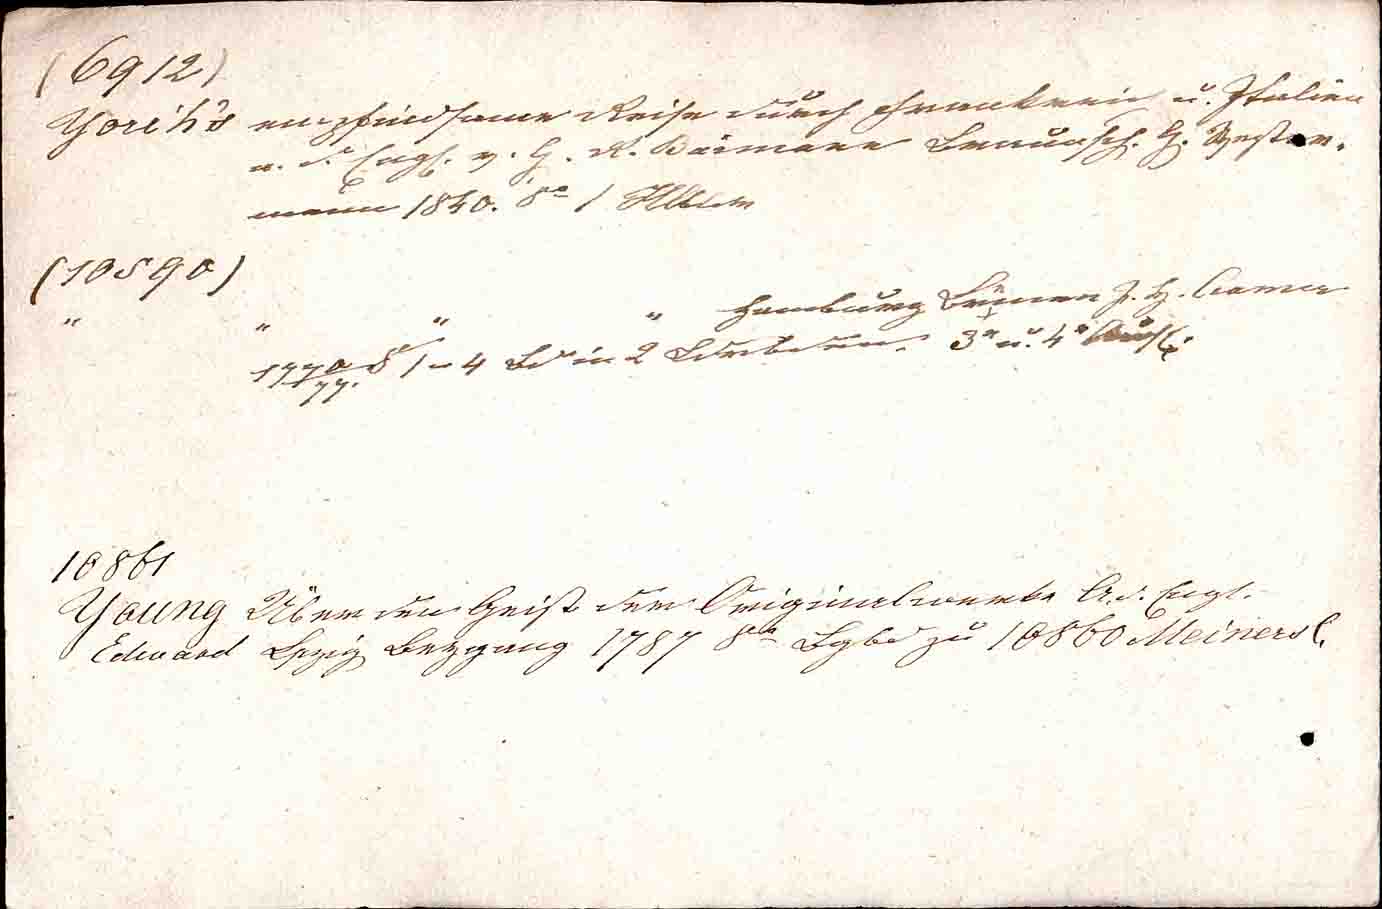 (6912)
Yorik's empfindsame Reise durch Frankreich u. Italien
a. d. Engl. v. G. R. Bärmann Braunschw. G. Wester-
mann 1840. 8° 1 Hlbldr
(10590)
" " " " Hamburg Bremen J. H. Cramer
1770/77. 8° 1-4 Bd in 2 Ldrbden. 3e u. 4e Aufl.
10861
Young Über den Geist der Originalwerke A. d. Engl.
Eduard Lpzig 1787 8° zu 10860 Meiners C.